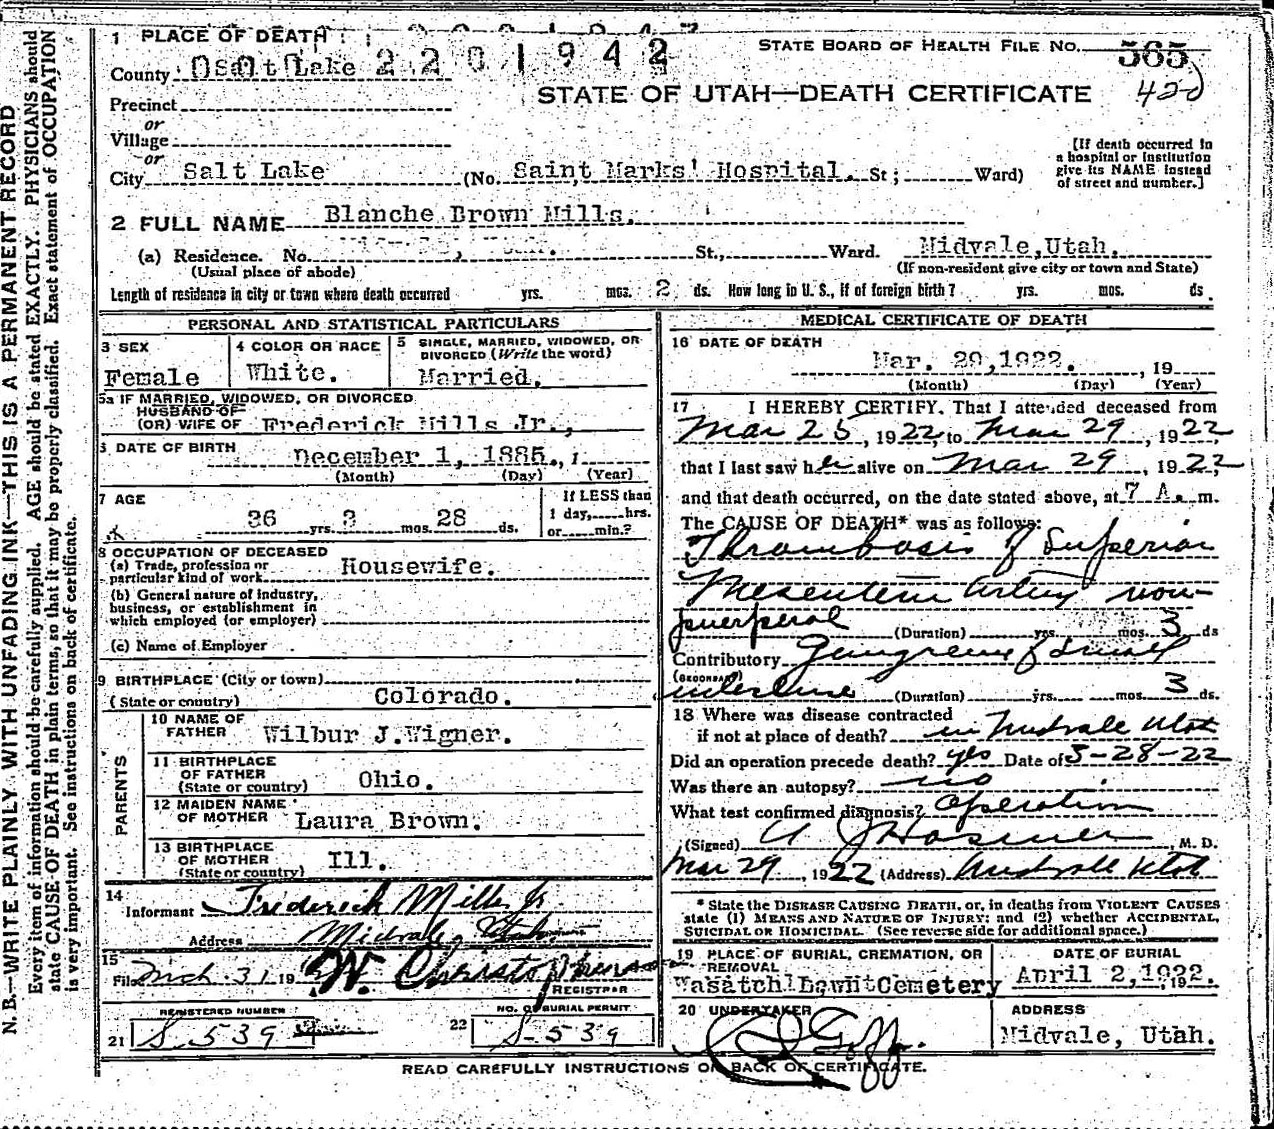 N. B.—WRITE PLAINLY, WITH UNFADING INK—THIS IS A PERMANENT RECORD
Every item of information should be carefully supplied. AGE should be stated EXACTLY. PHYSICIANS should
state CAUSE OF DEATH in plain terms, so that it may be properly classified. Exact statement of OCCUPATION
is very important. See instructions on back of certificate.
1 PLACE OF DEATH
County Salt Lake 2201942
STATE BOARD OF HEALTH FILE NO. 565
STATE OF UTAH—DEATH CERTIFICATE 420
Precinct
or
Village
or
City Salt Lake (No. Saint Marks' Hospital. St; Ward)
[If death occurred in
a hospital or institution
give its NAME instead
of street and number.]
2 FULL NAME Blanche Brown Mills.
(a) Residence. No. St., Ward. Midvale, Utah.
(Usual place of abode) (If non-resident give city or town and State)
Length of residence in city or town where death occurred yrs. mos. 2 ds. How long in U. S., if of foreign birth? yrs. mos. ds.
PERSONAL AND STATISTICAL PARTICULARS
3 SEX
Female
4 COLOR OR RACE
White.
5 SINGLE, MARRIED, WIDOWED, OR
DIVORCED (Write the word)
Married.
5a IF MARRIED, WIDOWED, OR DIVORCED
HUSBAND OF
(OR) WIFE OF Frederick Mills Jr.,
6 DATE OF BIRTH December 1, 1885.,
(Month) (Day) (Year)
7 AGE
36 yrs. 3 mos. 28 ds.
If LESS than
1 day, hrs.
or min.?
8 OCCUPATION OF DECEASED
(a) Trade, profession or
particular kind of work Housewife.
(b) General nature of industry,
business, or establishment in
which employed (or employer)
(c) Name of Employer
9 BIRTHPLACE (City or town)
(State or country) Colorado.
PARENTS
10 NAME OF
FATHER Wilbur J.Wigner.
11 BIRTHPLACE
OF FATHER
(State or country) Ohio.
12 MAIDEN NAME
OF MOTHER Laura Brown.
13 BIRTHPLACE
OF MOTHER
(State or country) Ill.
14
Informant Frederick Mills Jr
Address Midvale, Utah.
15
Filed Mch. 31 19 W. Christophersen
REGISTRAR
REGISTERED NUMBER
21 S-539
NO. OF BURIAL PERMIT
22 S-539
MEDICAL CERTIFICATE OF DEATH
16 DATE OF DEATH
Mar. 29,1922. , 19
(Month) (Day) (Year)
17 I HEREBY CERTIFY, That I attended deceased from
Mar 25, 1922, to Mar 29, 1922,
that I last saw her alive on Mar 29, 1922,
and that death occurred, on the date stated above, at 7 A. m.
The CAUSE OF DEATH* was as follows:
Thrombosis of Superior
Mesenteric Artery non-
puerperal (Duration) yrs. mos. 3 ds
Contributory Gangrene of small
intestine (Duration) yrs. mos. 3 ds.
18 Where was disease contracted
if not at place of death? in Midvale Utah
Did an operation precede death? yes Date of 3-28-22
Was there an autopsy? no
What test confirmed diagnosis? Operation
(Signed) M. D.
Mar 29, 1922 (Address) Midvale Utah
* State the DISEASE CAUSING DEATH, or, in deaths from VIOLENT CAUSES
state (1) MEANS AND NATURE OF INJURY; and (2) whether ACCIDENTAL,
SUICIDAL OR HOMICIDAL. (See reverse side for additional space.)
19 PLACE OF BURIAL, CREMATION, OR
REMOVAL
Wasatch Lawn Cemetery
DATE OF BURIAL
April 2,1922.
20 UNDERTAKER
Goff
ADDRESS
Midvale, Utah.
READ CAREFULLY INSTRUCTIONS ON BACK OF CERTIFICATE.